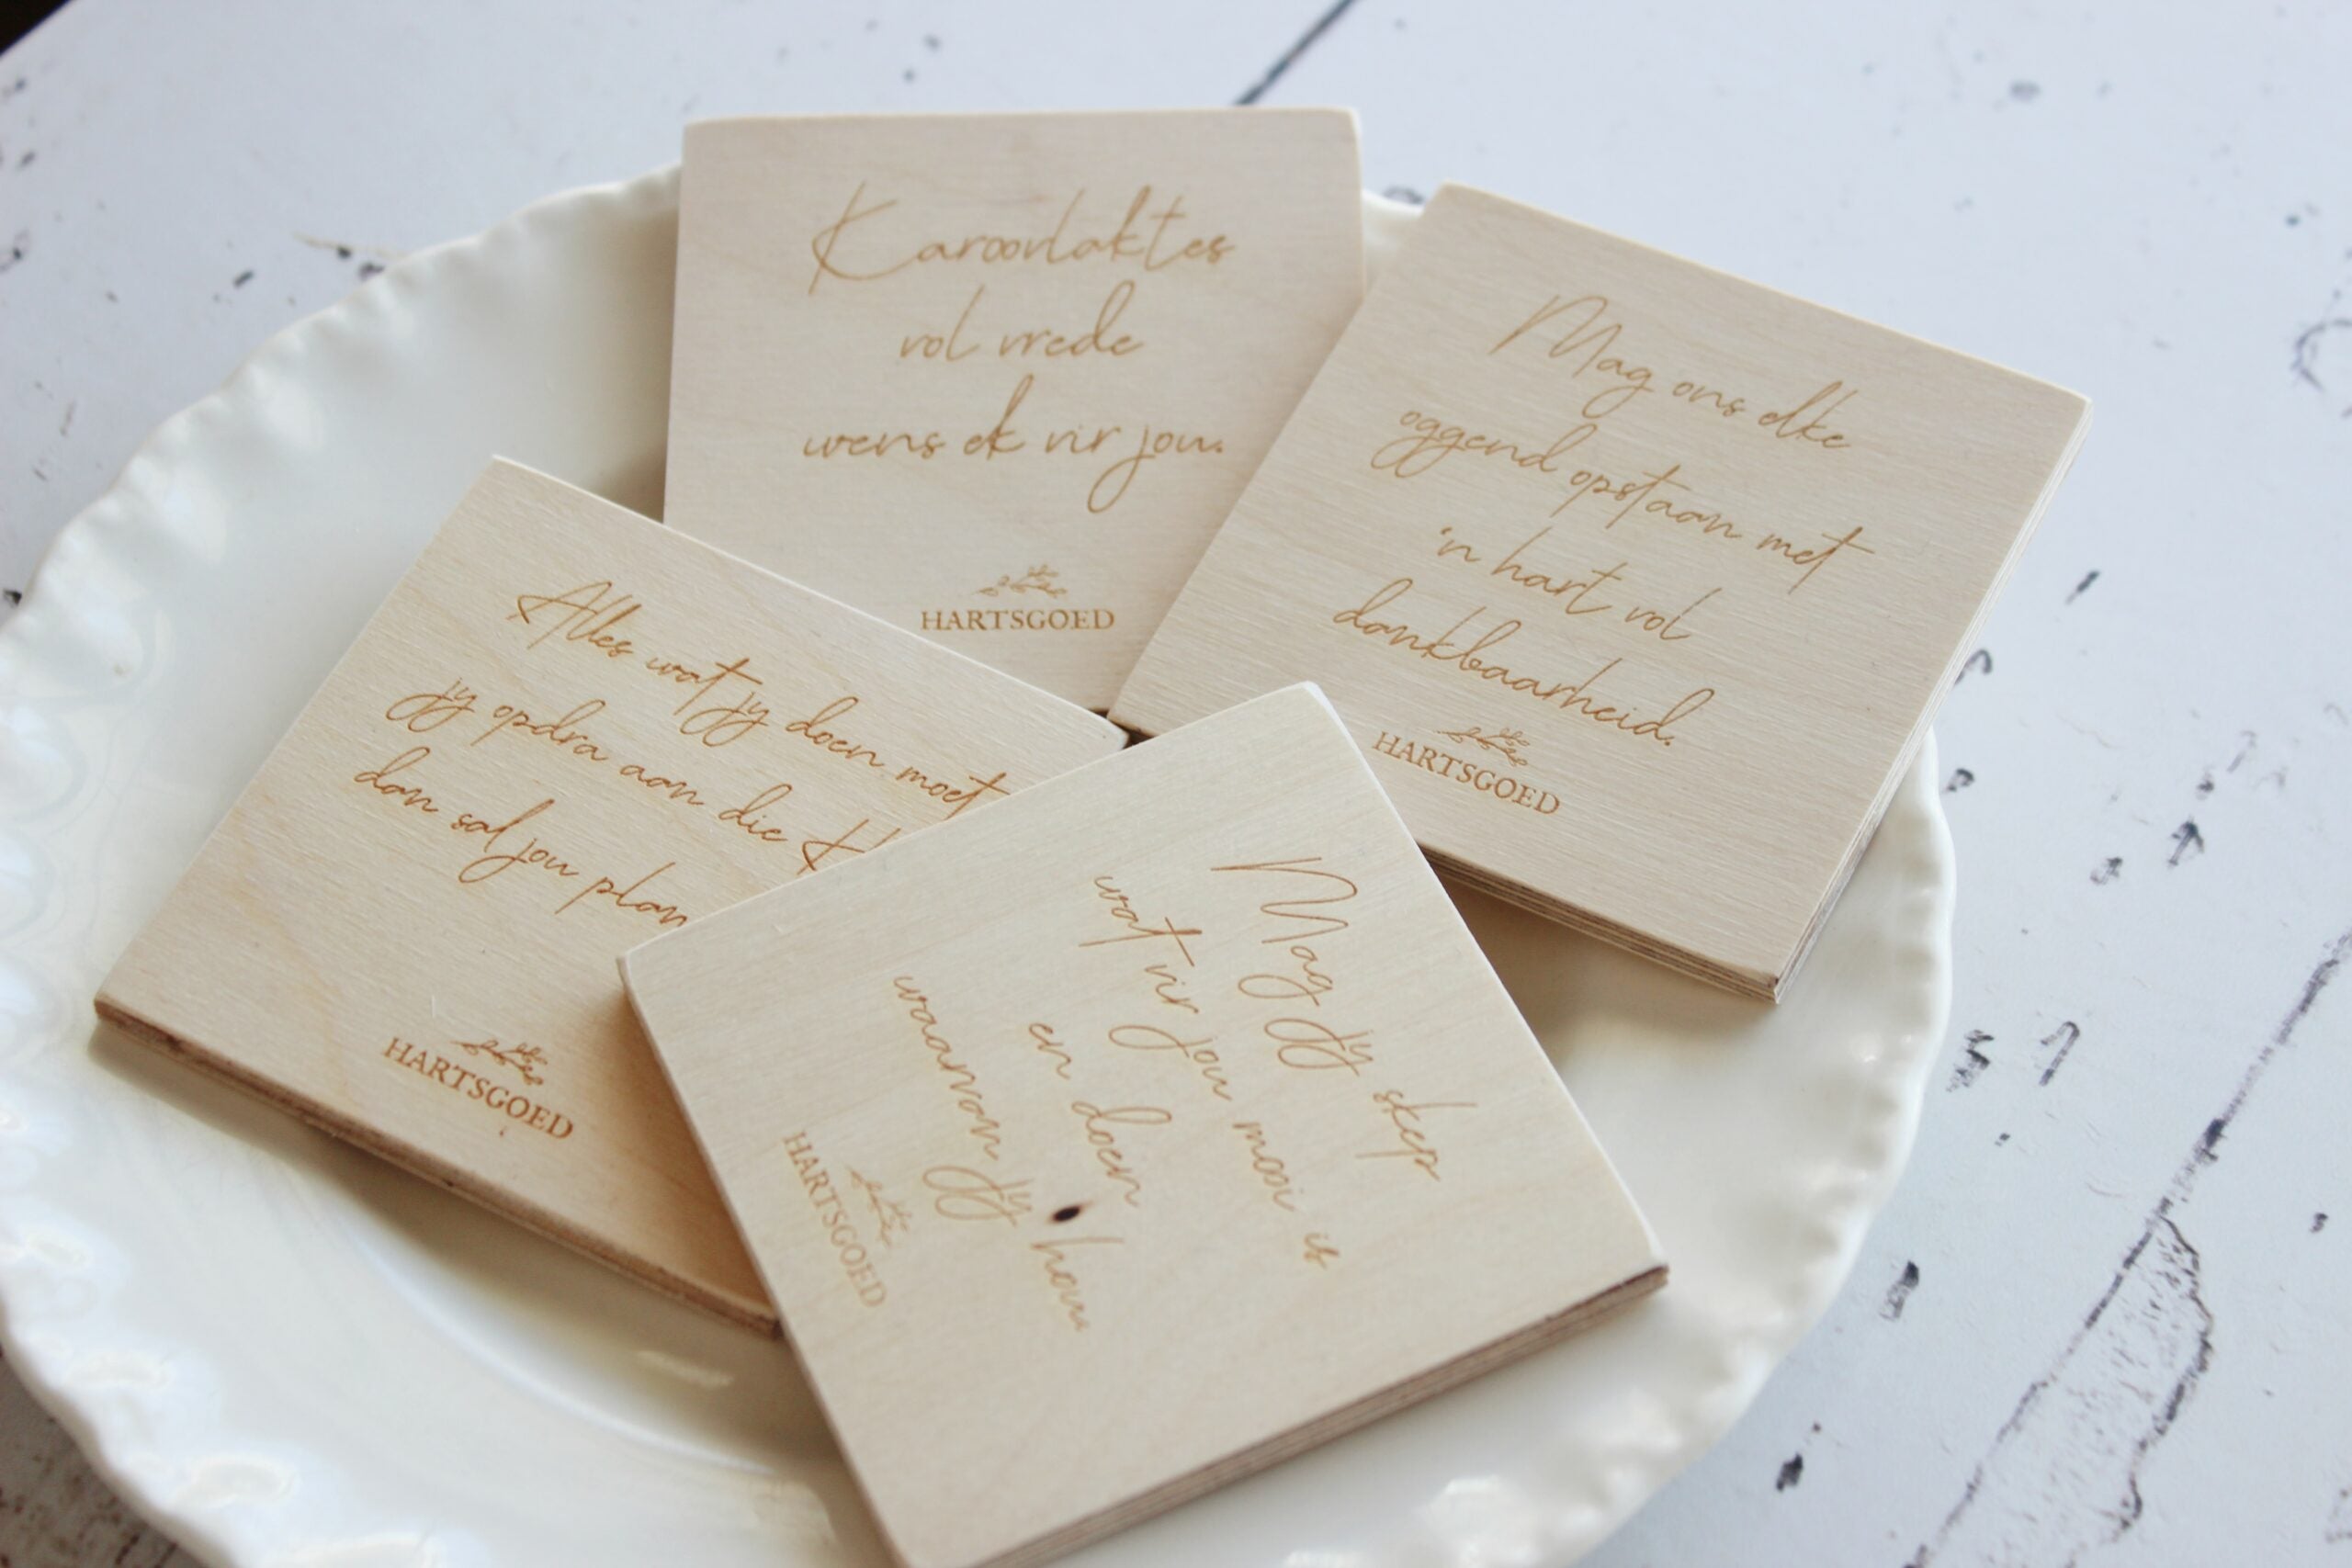 Karoovlaktes
vol vrede
wens ek vir jou.
HARTSGOED
Mag ons elke
oggend opstaan met
'n hart vol
dankbaarheid.
HARTSGOED
Alles wat jy doen moet
jy opdra aan die
dan sal jou plan
HARTSGOED
Mag jy skep
wat vir jou mooi is
en doen
waarvan jy hou
HARTSGOED